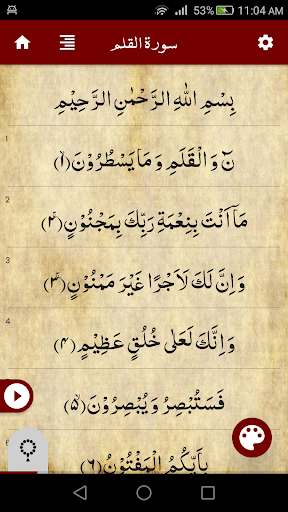 53% 11:04 AM
سورة القلم
بِسْمِ اللهِ الرَّحْمٰنِ الرَّحِيْمِ
1
نٓ وَالْقَلَمِ وَمَا يَسْطُرُوْنَ ﴿۱﴾
2
مَاۤ اَنْتَ بِنِعْمَةِ رَبِّكَ بِمَجْنُوْنٍ ﴿۲﴾
3
وَاِنَّ لَكَ لَاَجْرًا غَيْرَ مَمْنُوْنٍ ﴿۳﴾
4
وَاِنَّكَ لَعَلٰى خُلُقٍ عَظِيْمٍ ﴿۴﴾
فَسَتُبْصِرُ وَيُبْصِرُوْنَ ﴿۵﴾
بِاَيِّكُمُ الْمَفْتُوْنُ ﴿۶﴾